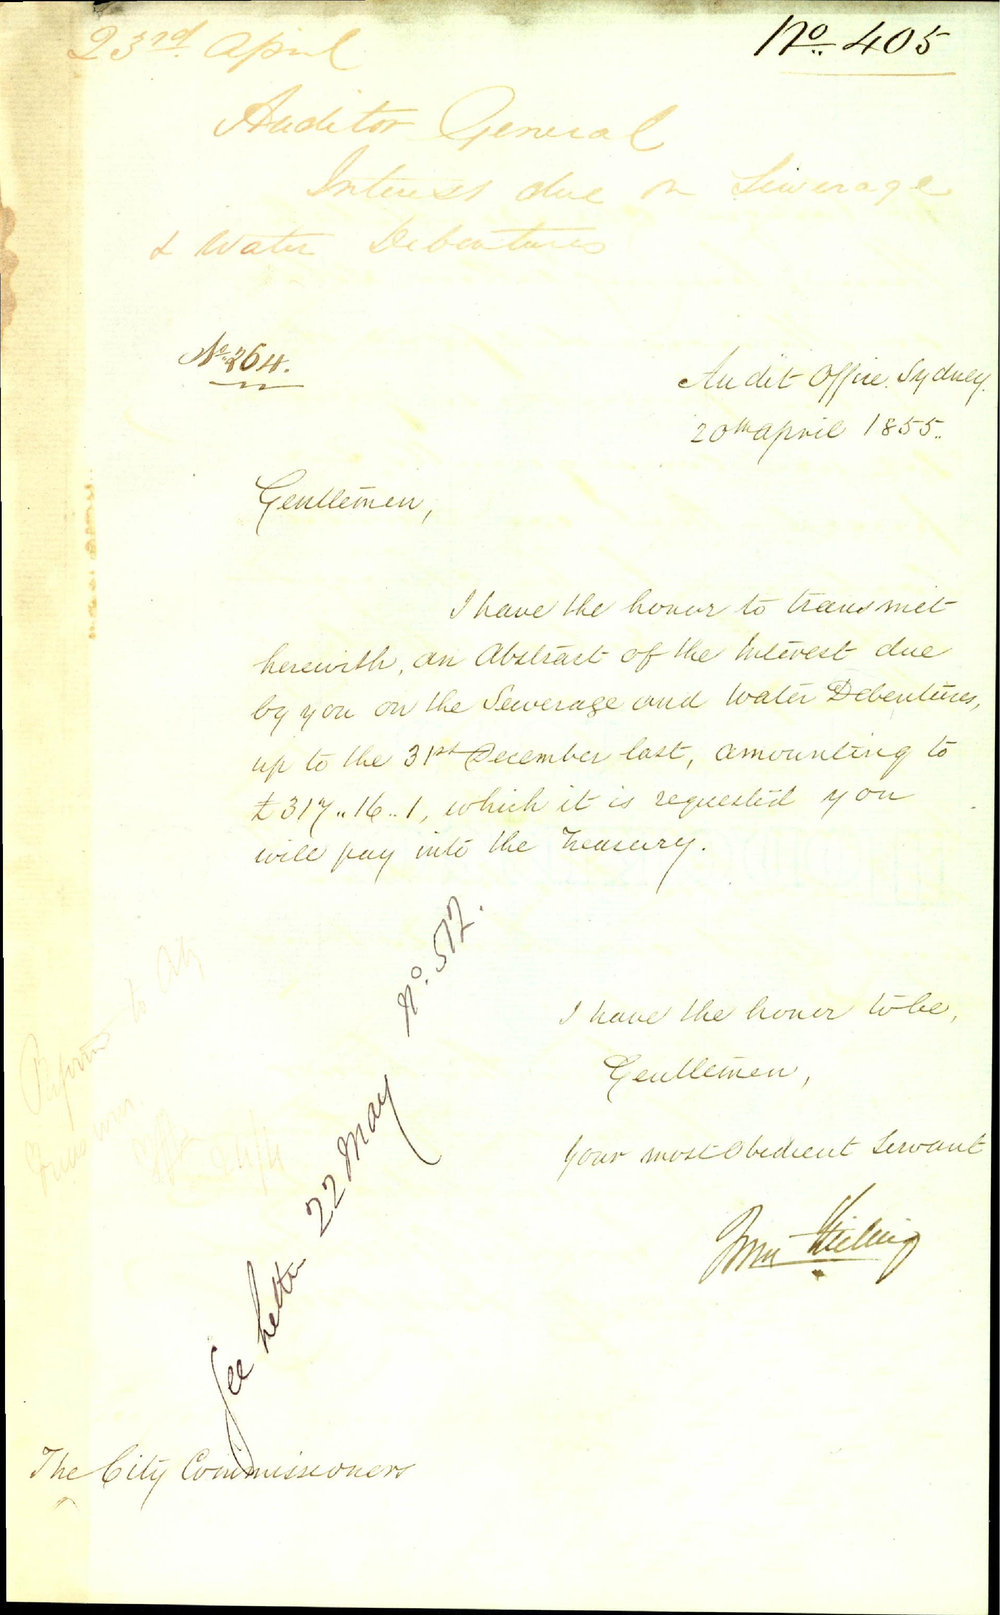 23rd April
No. 405
Auditor General
Interest due on Sewerage
& Water Debentures
No. 264.
Audit Office. Sydney.
20th April 1855.
Gentlemen,
I have the honor to transmit
herewith, an Abstract of the Interest due
by you on the Sewerage and Water Debentures,
up to the 31st December last, amounting to
£317..16..1, which it is requested you
will pay into the Treasury.
I have the honor to be,
Gentlemen,
Your most Obedient Servant
See Letter 22 May No. 512.
The City Commissioners